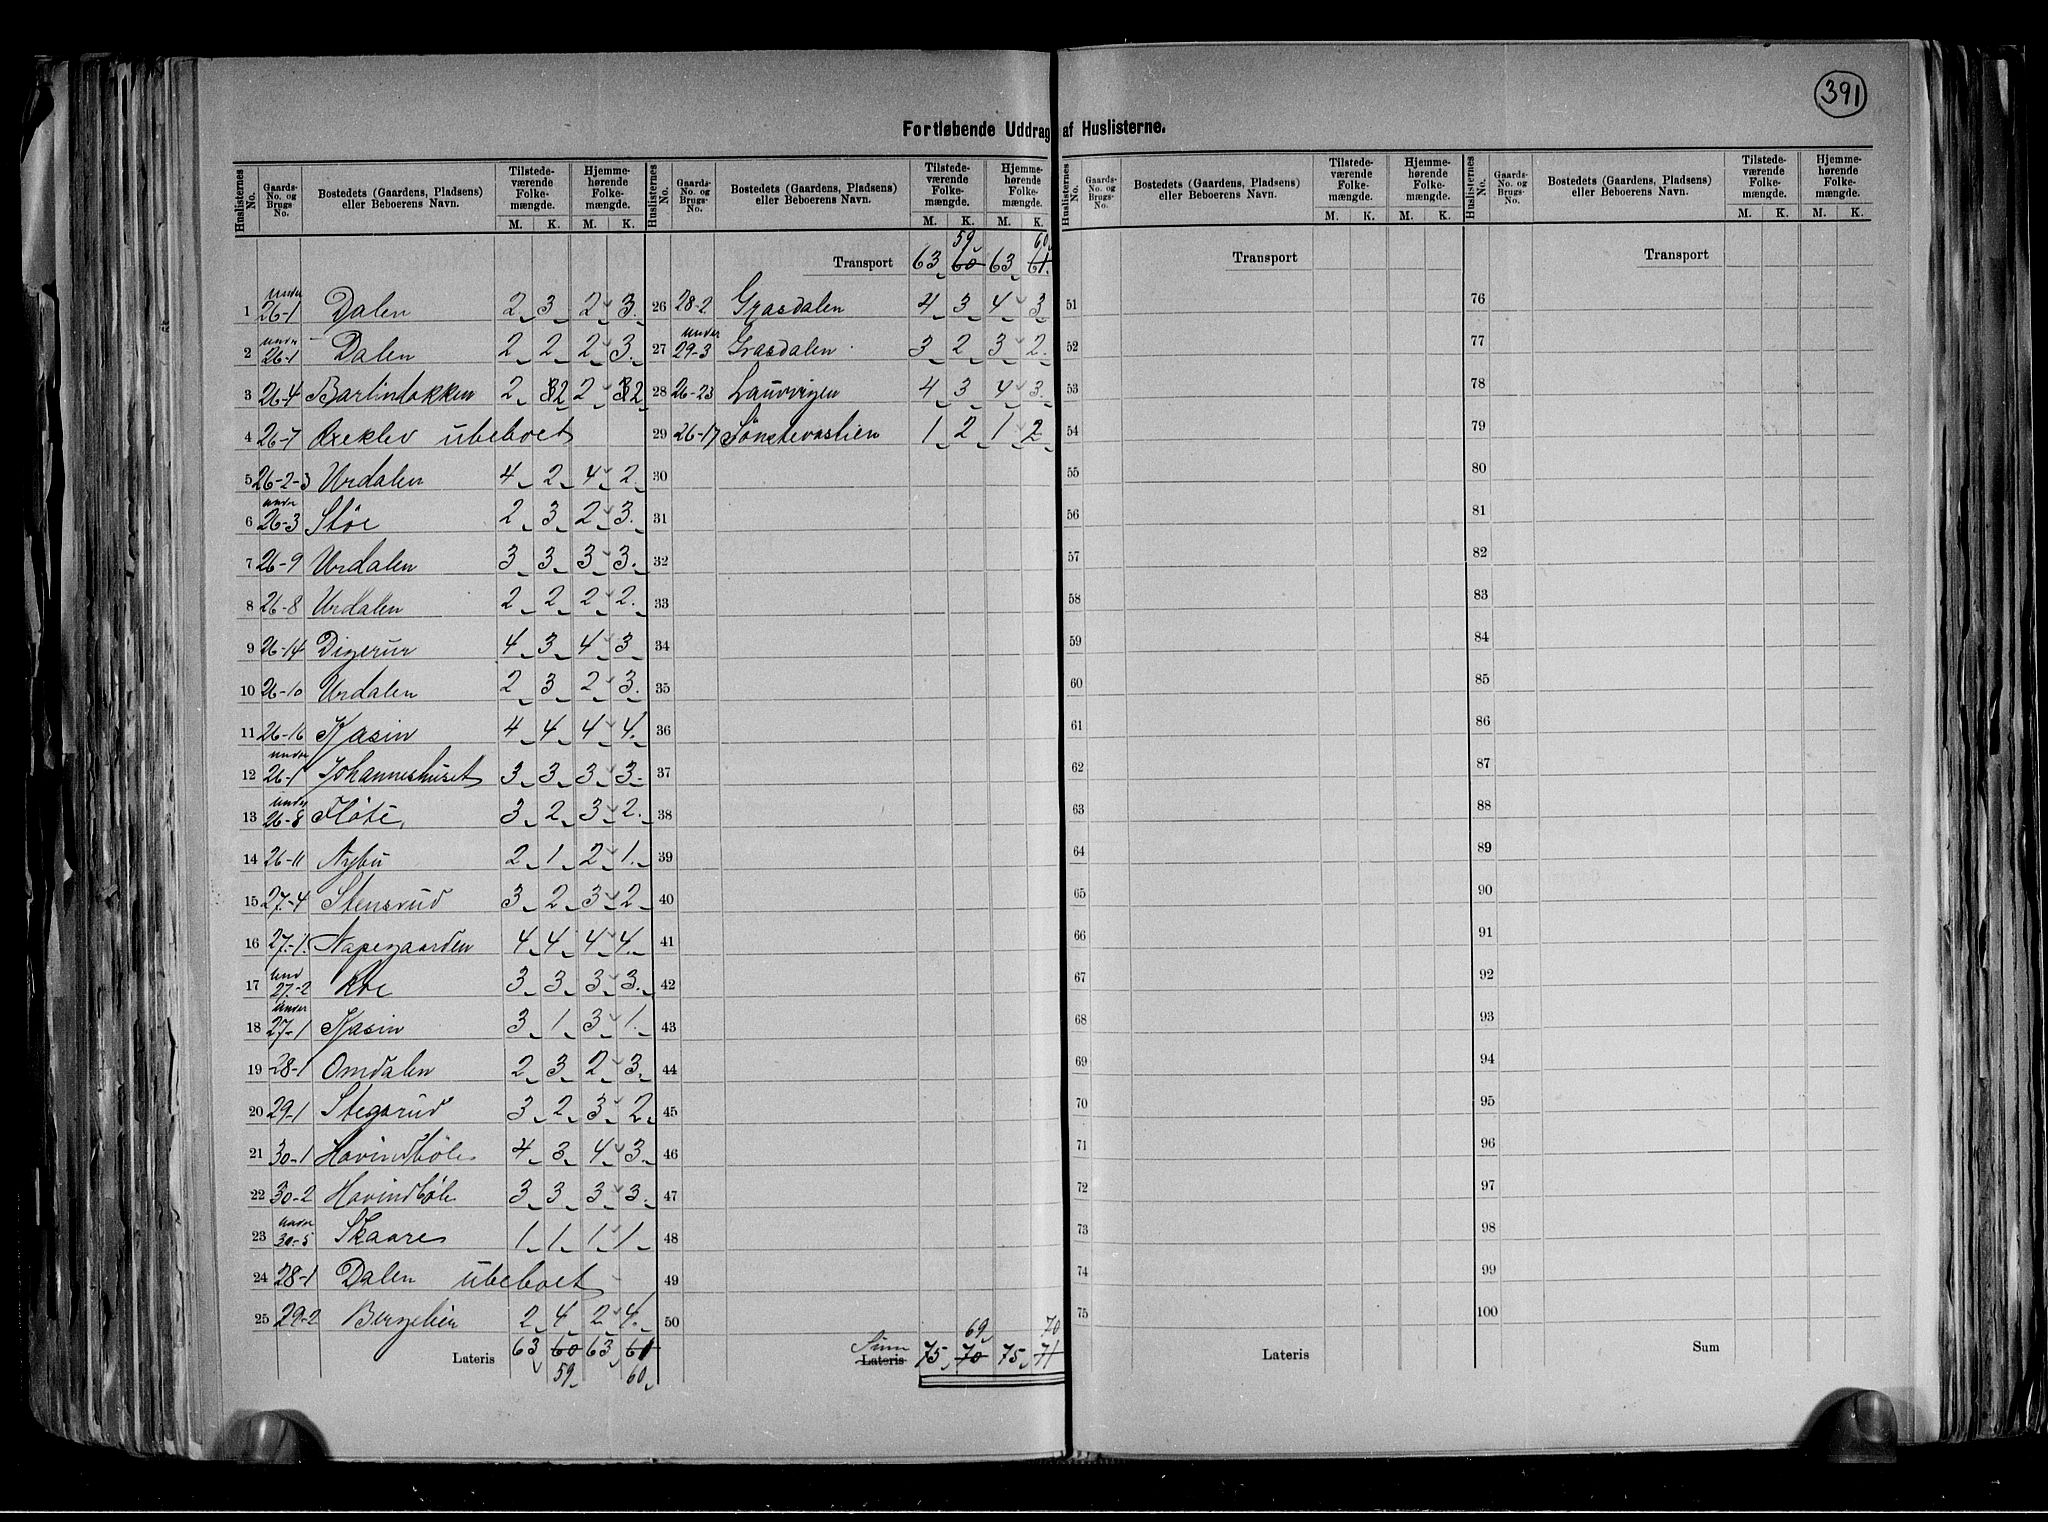 391
Fortløbende Uddrag af Huslisterne.
Huslisternes No. Gaards-No. og Brugs-No. Bostedets (Gaardens, Pladsens) eller Beboerens Navn. Tilstedeværende Folkemængde. M. K. Hjemmehørende Folkemængde. M. K.
1 under 26-1 Dalen 2 3 2 3.
2 under 26-1 Dalen 2 2 2 3.
3 26-4 Barlindokken 2 2 2 2
4 26-7 ubeboet
5 26-2-3 Urdalen 4 2 4 2
6 under 26-3 Støe 2 3 2 3.
7 26-9 Urdalen 3 3 3 3.
8 26-8 Urdalen 2 2 2 2.
9 26-14 Digerur 4 3 4 3
10 26-10 Urdalen 2 3 2 3.
11 26-16 Kasin 4 4 4 4.
12 under 26-1 Johanneshuset 3 3 3 3.
13 under 26-8 Fløte 3 2 3 2.
14 26-11 Nybu 2 1 2 1.
15 27-4 Stensrud 3 2 3 2
16 27-1. Napegaarden 4 4 4 4.
17 und 27-2 Roe 3 3 3 3.
18 under 27-1 Kasin 3 1 3 1.
19 28-1 Omdalen 2 3 2 3.
20 29-1 Stegsrud 3 2 3 2
21 30-1 Hovindbøle 4 3 4 3.
22 30-2 Hovindbøle 3 3 3 3.
23 under 30-5 Skaare 1 1 1 1
24 28-1 Dalen ubeboet
25 29-2 Bergelien 2 4 2 4.
Lateris 63 60 63 61
59 60
Huslisternes No. Gaards-No. og Brugs-No. Bostedets (Gaardens, Pladsens) eller Beboerens Navn. Tilstedeværende Folkemængde. M. K. Hjemmehørende Folkemængde. M. K.
59 60
Transport 63 60 63 61.
26 28-2 Grasdalen 4 3 4 3
27 under 29-3 Grasdalen 3 2 3 2.
28 26-23 Lauvvigen 4 3 4 3.
29 26-17 Sønstevaslien 1 2 1 2
30
31
32
33
34
35
36
37
38
39
40
41
42
43
44
45
46
47
48
49
50
69 70
Sum Lateris 75 70 75 71
Huslisternes No. Gaards-No. og Brugs-No. Bostedets (Gaardens, Pladsens) eller Beboerens Navn. Tilstedeværende Folkemængde. M. K. Hjemmehørende Folkemængde. M. K.
Transport
51
52
53
54
55
56
57
58
59
60
61
62
63
64
65
66
67
68
69
70
71
72
73
74
75
Lateris
Huslisternes No. Gaards-No. og Brugs-No. Bostedets (Gaardens, Pladsens) eller Beboerens Navn. Tilstedeværende Folkemængde. M. K. Hjemmehørende Folkemængde. M. K.
Transport
76
77
78
79
80
81
82
83
84
85
86
87
88
89
90
91
92
93
94
95
96
97
98
99
100
Sum